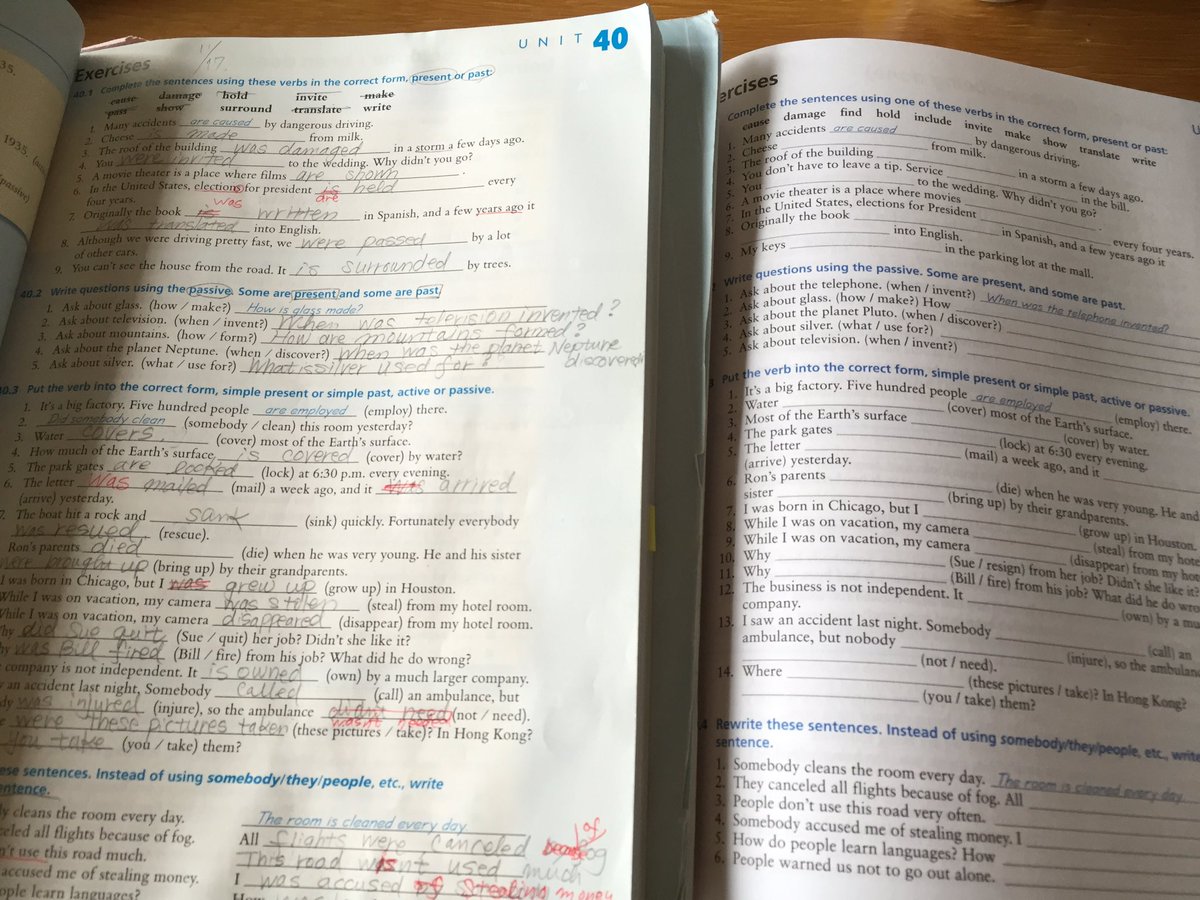 35.
1935, (au
passive)
1/17.
UNIT 40
Exercises
40.1 Complete the sentences using these verbs in the correct form, present or past:
cause damage hold invite make
pass show surround translate write
1. Many accidents are caused by dangerous driving.
2. Cheese is made from milk.
3. The roof of the building was damaged in a storm a few days ago.
4. You were invited to the wedding. Why didn't you go?
5. A movie theater is a place where films are shown.
6. In the United States, elections for president is held every
are
four years.
was
7. Originally the book is written in Spanish, and a few years ago it
was translated into English.
8. Although we were driving pretty fast, we were passed by a lot
of other cars.
9. You can't see the house from the road. It is surrounded by trees.
40.2 Write questions using the passive. Some are present and some are past.
1. Ask about glass. (how / make?) How is glass made?
2. Ask about television. (when / invent?) When was television invented?
3. Ask about mountains. (how / form?) How are mountains formed?
4. Ask about the planet Neptune. (when / discover?) When was the planet Neptune
discovered
5. Ask about silver. (what / use for?) What is silver used for?
40.3 Put the verb into the correct form, simple present or simple past, active or passive.
1. It's a big factory. Five hundred people are employed (employ) there.
2. Did somebody clean (somebody / clean) this room yesterday?
3. Water covers. (cover) most of the Earth's surface.
4. How much of the Earth's surface is covered (cover) by water?
5. The park gates are locked (lock) at 6:30 p.m. every evening.
6. The letter was mailed (mail) a week ago, and it was arrived
(arrive) yesterday.
7. The boat hit a rock and sank (sink) quickly. Fortunately everybody
was resued. (rescue).
Ron's parents died (die) when he was very young. He and his sister
were brought up (bring up) by their grandparents.
I was born in Chicago, but I was grew up (grow up) in Houston.
While I was on vacation, my camera was stolen (steal) from my hotel room.
While I was on vacation, my camera disappeared (disappear) from my hotel room.
hy did Sue quit (Sue / quit) her job? Didn't she like it?
hy was Bill fired (Bill / fire) from his job? What did he do wrong?
company is not independent. It is owned (own) by a much larger company.
an accident last night, Somebody called (call) an ambulance, but
dy was injured (injure), so the ambulance didn't need (not / need).
wasn't needed
e were these pictures taken (these pictures / take)? In Hong Kong?
you take (you / take) them?
ese sentences. Instead of using somebody/they/people, etc., write
entence.
ly cleans the room every day. The room is cleaned every day.
celed all flights because of fog. All flights were canceled because of fog
n't use this road much. This road isn't used much
accused me of stealing money. I was accused of stealing money
ople learn languages? How
ercises
Complete the sentences using one of these verbs in the correct form, present or past:
cause damage find hold include invite make show translate write
1. Many accidents are caused by dangerous driving.
2. Cheese from milk.
3. The roof of the building in a storm a few days ago.
4. You don't have to leave a tip. Service in the bill.
5. You to the wedding. Why didn't you go?
6. A movie theater is a place where movies .
7. In the United States, elections for President every four years.
8. Originally the book in Spanish, and a few years ago it
into English.
9. My keys in the parking lot at the mall.
Write questions using the passive. Some are present, and some are past.
1. Ask about the telephone. (when / invent?) When was the telephone invented?
2. Ask about glass. (how / make?) How
3. Ask about the planet Pluto. (when / discover?)
4. Ask about silver. (what / use for?)
5. Ask about television. (when / invent?)
Put the verb into the correct form, simple present or simple past, active or passive.
1. It's a big factory. Five hundred people are employed (employ) there.
2. Water (cover) most of the Earth's surface.
3. Most of the Earth's surface (cover) by water.
4. The park gates (lock) at 6:30 every evening.
5. The letter (mail) a week ago, and it
(arrive) yesterday.
6. Ron's parents (die) when he was very young. He and
sister (bring up) by their grandparents.
7. I was born in Chicago, but I (grow up) in Houston.
8. While I was on vacation, my camera (steal) from my hote
9. While I was on vacation, my camera (disappear) from my hot
10. Why (Sue / resign) from her job? Didn't she like it?
11. Why (Bill / fire) from his job? What did he do wro
12. The business is not independent. It (own) by a mu
company.
13. I saw an accident last night. Somebody (call) an
ambulance, but nobody (injure), so the ambulan
(not / need).
14. Where (these pictures / take)? In Hong Kong?
(you / take) them?
4 Rewrite these sentences. Instead of using somebody/they/people, etc., write
sentence.
1. Somebody cleans the room every day. The room is cleaned every day.
2. They canceled all flights because of fog. All
3. People don't use this road very often.
4. Somebody accused me of stealing money. I
5. How do people learn languages? How
6. People warned us not to go out alone.